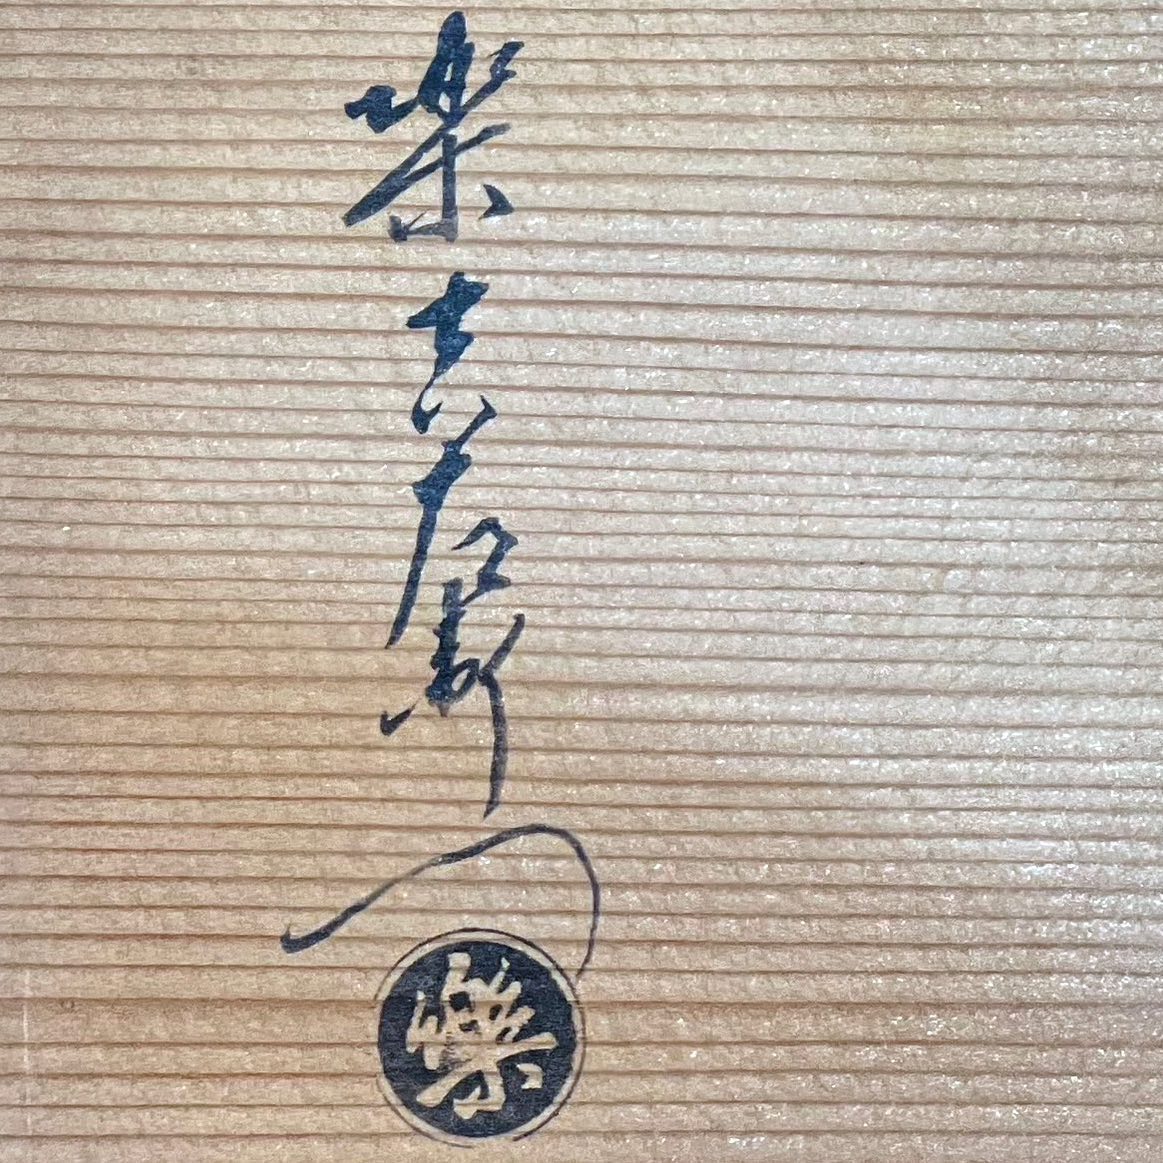 樂吉左衛門
樂